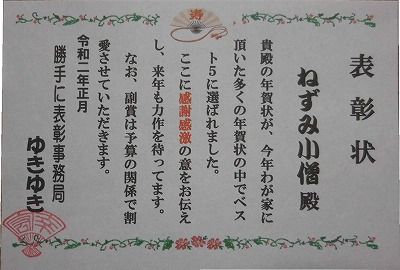 寿
表彰状
ねずみ小僧殿
貴殿の年賀状が、今年わが家に
頂いた多くの年賀状の中でベス
ト5に選ばれました。
ここに感謝感激の意をお伝え
し、来年も力作を待ってます。
なお、副賞は予算の関係で割
愛させていただきます。
令和二年正月
勝手に表彰事務局
ゆきゆき